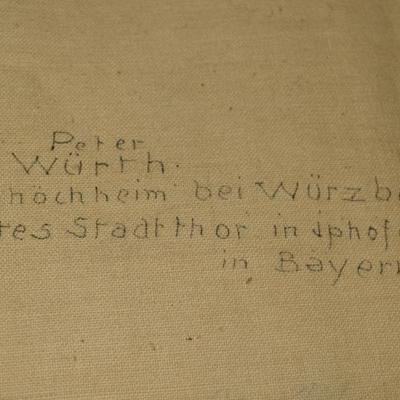 Peter
Würth.
höchheim bei Würzb
tes Stadtthor in Iphofe
in Bayern